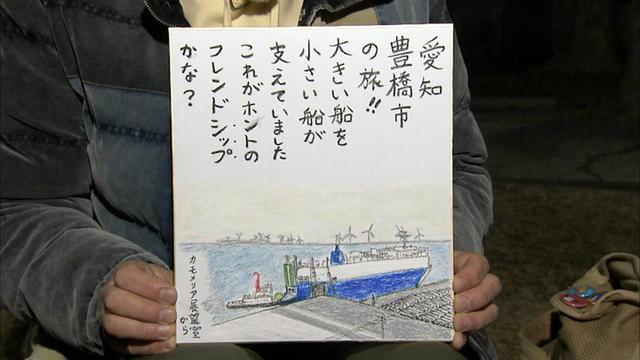 愛知
豊橋市
の旅!!
大きい船を
小さい船が
支えていました
これがホントの
フレンドシップ
かな？
カモメリア展望室
から